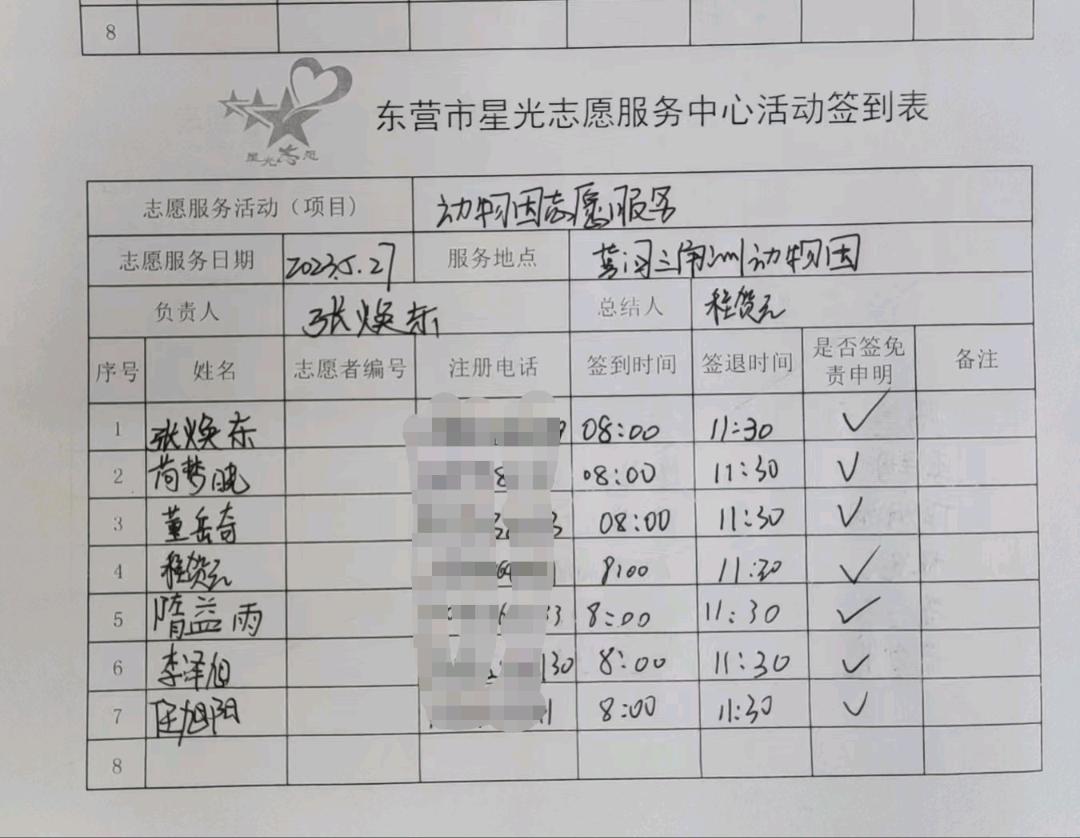 8
星光志愿
东营市星光志愿服务中心活动签到表
志愿服务活动（项目） 动物园志愿服务
志愿服务日期 2023.5.27 服务地点 黄河三角洲动物园
负责人 张焕东 总结人 程贺元
序号 姓名 志愿者编号 注册电话 签到时间 签退时间 是否签免责申明 备注
1 张焕东 9 08:00 11:30 ✓
2 荀梦晓 8 08:00 11:30 ✓
3 董岳奇 3 08:00 11:30 ✓
4 程贺元 1 8:00 11:30 ✓
5 隋益雨 33 8:00 11:30 ✓
6 李泽旭 130 8:00 11:30 ✓
7 任旭阳 1 8:00 11:30 ✓
8